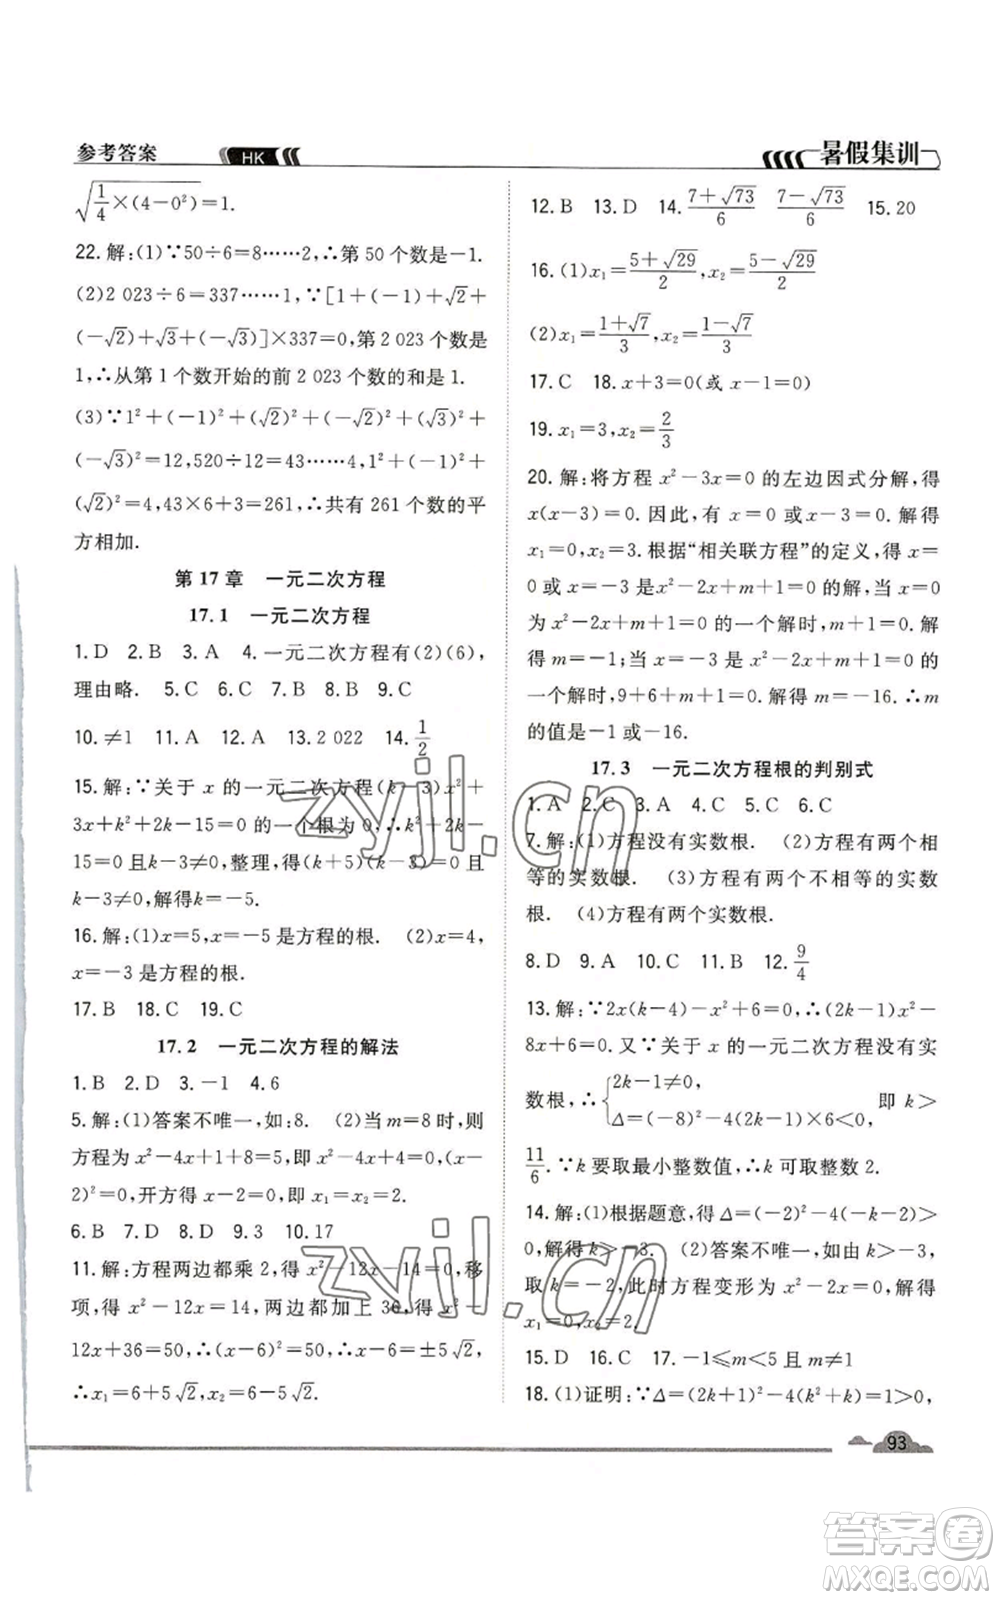 参考答案
HK
暑假集训
√(1/4×(4-0²))=1.
22.解:(1)∵50÷6=8……2,∴第 50 个数是-1.
(2)2 023÷6=337……1,∵[1+(-1)+√2+
(-√2)+√3+(-√3)]×337=0,第 2 023 个数是
1,∴从第 1 个数开始的前 2 023 个数的和是 1.
(3)∵1²+(-1)²+(√2)²+(-√2)²+(√3)²+
(-√3)²=12,520÷12=43……4,1²+(-1)²+
(√2)²=4,43×6+3=261,∴共有 261 个数的平
方相加.
第 17 章 一元二次方程
17.1 一元二次方程
1.D 2.B 3.A 4.一元二次方程有(2)(6),
理由略. 5.C 6.C 7.B 8.B 9.C
10.≠1 11.A 12.A 13.2 022 14.1/2
15.解:∵关于 x 的一元二次方程(k-3)x²+
3x+k²+2k-15=0的一个根为 0,∴k²+2k-
15=0且k-3≠0,整理,得(k+5)(k-3)=0且
k-3≠0,解得k=-5.
16.解:(1)x=5,x=-5是方程的根. (2)x=4,
x=-3是方程的根.
17.B 18.C 19.C
17.2 一元二次方程的解法
1.B 2.D 3.-1 4.6
5.解:(1)答案不唯一,如:8. (2)当m=8时,则
方程为 x²-4x+1+8=5,即 x²-4x+4=0,(x-
2)²=0,开方得 x-2=0,即 x₁=x₂=2.
6.B 7.D 8.D 9.3 10.17
11.解:方程两边都乘 2,得 x²-12x-14=0,移
项,得 x²-12x=14,两边都加上 36,得 x²-
12x+36=50,∴(x-6)²=50,∴x-6=±5√2,
∴x₁=6+5√2,x₂=6-5√2.
12.B 13.D 14.(7+√73)/6 (7-√73)/6 15.20
16.(1)x₁=(5+√29)/2,x₂=(5-√29)/2
(2)x₁=(1+√7)/3,x₂=(1-√7)/3
17.C 18.x+3=0(或 x-1=0)
19.x₁=3,x₂=2/3
20.解:将方程 x²-3x=0 的左边因式分解,得
x(x-3)=0.因此,有 x=0 或x-3=0.解得
x₁=0,x₂=3.根据“相关联方程”的定义,得x=
0或x=-3 是方程 x²-2x+m+1=0的解,当x=0
为 x²-2x+m+1=0 的一个解时,m+1=0.解
得 m=-1;当x=-3 是 x²-2x+m+1=0 的
一个解时,9+6+m+1=0.解得 m=-16.∴m
的值是-1 或-16.
17.3 一元二次方程根的判别式
1.A 2.C 3.A 4.C 5.C 6.C
7.解:(1)方程没有实数根. (2)方程有两个相
等的实数根. (3)方程有两个不相等的实数
根. (4)方程有两个实数根.
8.D 9.A 10.C 11.B 12.9/4
13.解:∵2x(k-4)-x²+6=0,∴(2k-1)x²-
8x+6=0.又∵关于 x 的一元二次方程没有实
数根,∴{2k-1≠0, Δ=(-8)²-4(2k-1)×6<0, 即 k>
11/6.∵k 要取最小整数值,∴k 可取整数 2.
14.解:(1)根据题意,得 Δ=(-2)²-4(-k-2)>
0,解得 k>-3. (2)答案不唯一,如由 k>-3,
取 k=-2,此时方程变形为 x²-2x=0,解得
x₁=0,x₂=2.
15.D 16.C 17.-1≤m<5 且 m≠1
18.(1)证明:∵Δ=(2k+1)²-4(k²+k)=1>0,
93
zyjl.cn
zyjl.cn
答案圈
MXQE.COM